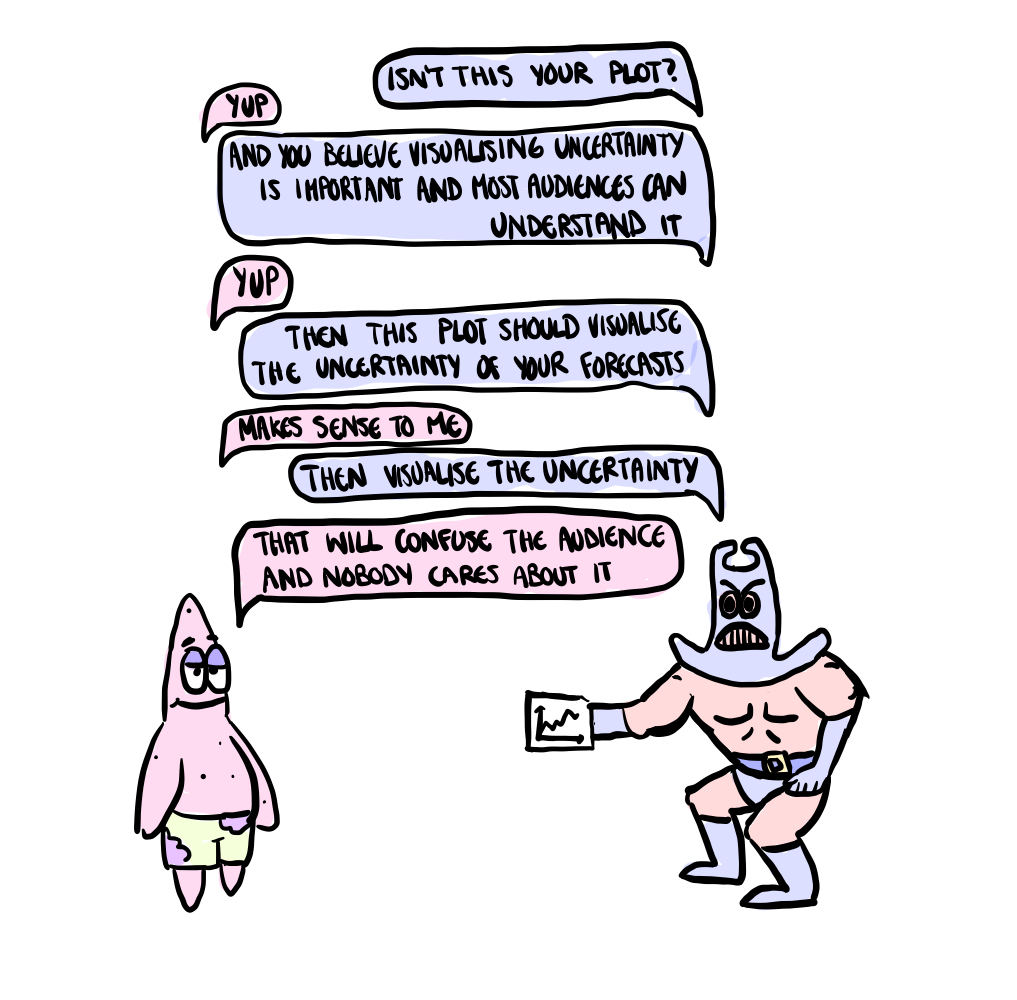 ISN'T THIS YOUR PLOT?
YUP
AND YOU BELIEVE VISUALISING UNCERTAINTY
IS IMPORTANT AND MOST AUDIENCES CAN
UNDERSTAND IT
YUP
THEN THIS PLOT SHOULD VISUALISE
THE UNCERTAINTY OF YOUR FORECASTS
MAKES SENSE TO ME
THEN VISUALISE THE UNCERTAINTY
THAT WILL CONFUSE THE AUDIENCE
AND NOBODY CARES ABOUT IT